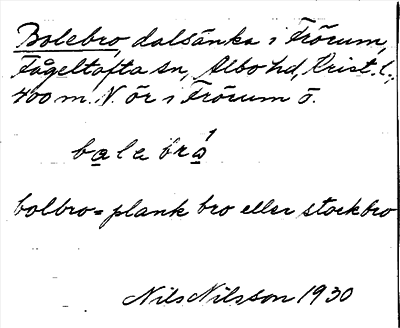 Bolebro, dalsänka i Frörum,
Fågeltofta sn, Albo hd, Krist. l.,
400 m. N. ör i Frörum ö.
bale brä
bolbro = plank bro eller stockbro
Nils Nilsson 1930